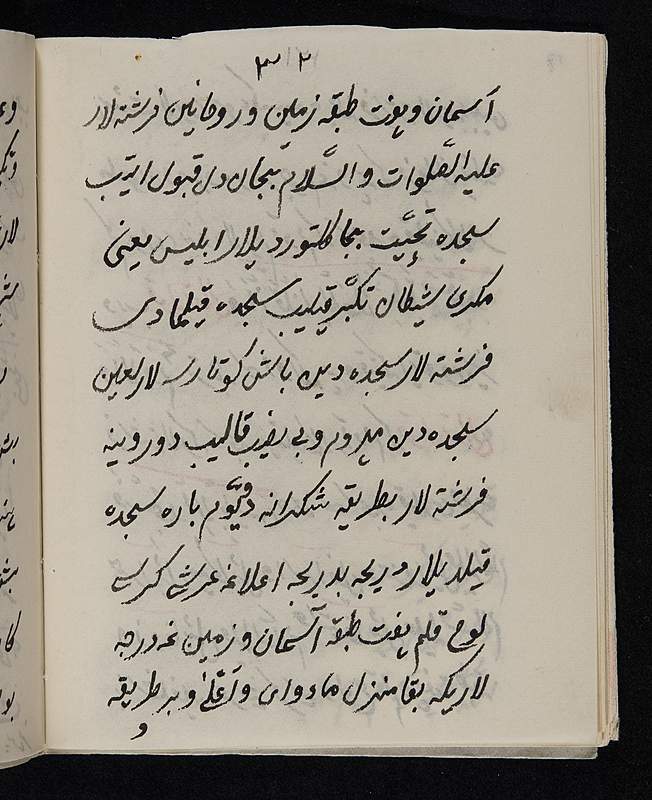 ۳۲
آسمان و یفت طبقه زمین و روحانین فرشته لار
علیه الصلوات والسّلام بجان دل قبول ایتیب
سجده تحیّت بجا کلتوردیلار ابلیس یعنی
مکری شیطان تکبّر قیلیب سجده قیلمادی
فرشته لار سجده دین باش کوتارسه لار لعین
سجده دین محروم و بی نصیب قالیب دور وینه
فرشته لار بطریقه شکرانه دویّوم باره سجده
قیلدیلار دریجه بدریجه اعلاغه عرش کرسی
لوح قلم یفت طبقه آسمان و زمین غه درجه
لاریکه بقا منزل ماءوای و بر طریقه
و